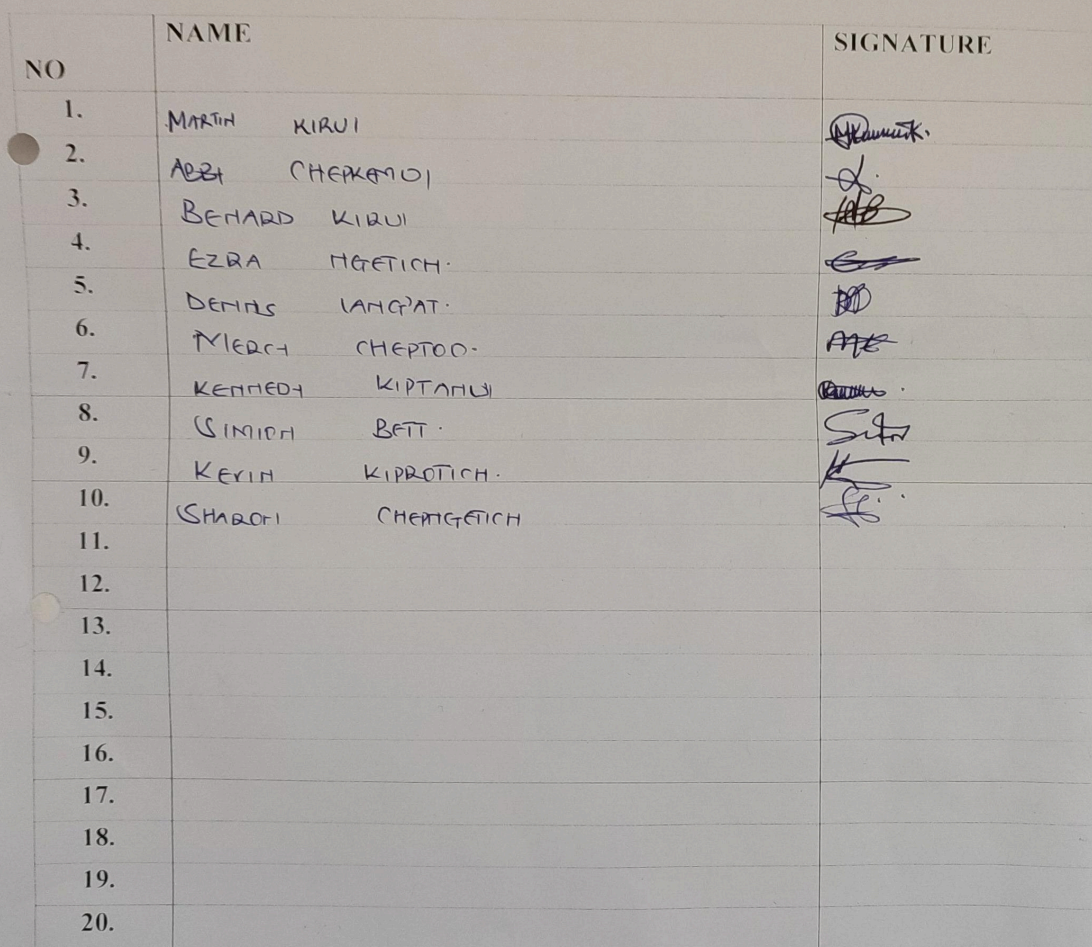 NO NAME SIGNATURE
1. MARTIN KIRUI
2. ABBY CHEPKEMOI
3. BENARD KIRUI
4. EZRA NGETICH.
5. DENNIS LANG'AT.
6. MERCY CHEPTOO.
7. KENNEDY KIPTANUI
8. SIMION BETT.
9. KEVIN KIPROTICH.
10. SHARON CHEPNGETICH
11.
12.
13.
14.
15.
16.
17.
18.
19.
20.